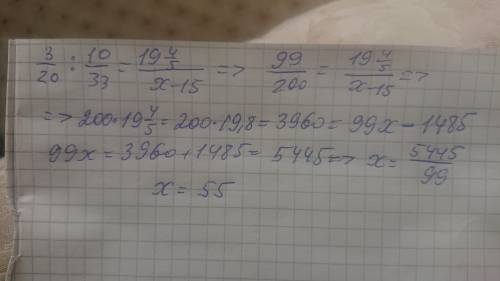 3/20 : 10/33 = 19 4/5 / x-15 => 99/200 = 19 4/5 / x-15 =>
=> 200·19 4/5 = 200·19,8 = 3960 = 99x - 1485
99x = 3960 + 1485 = 5445 => x = 5445/99
x = 55